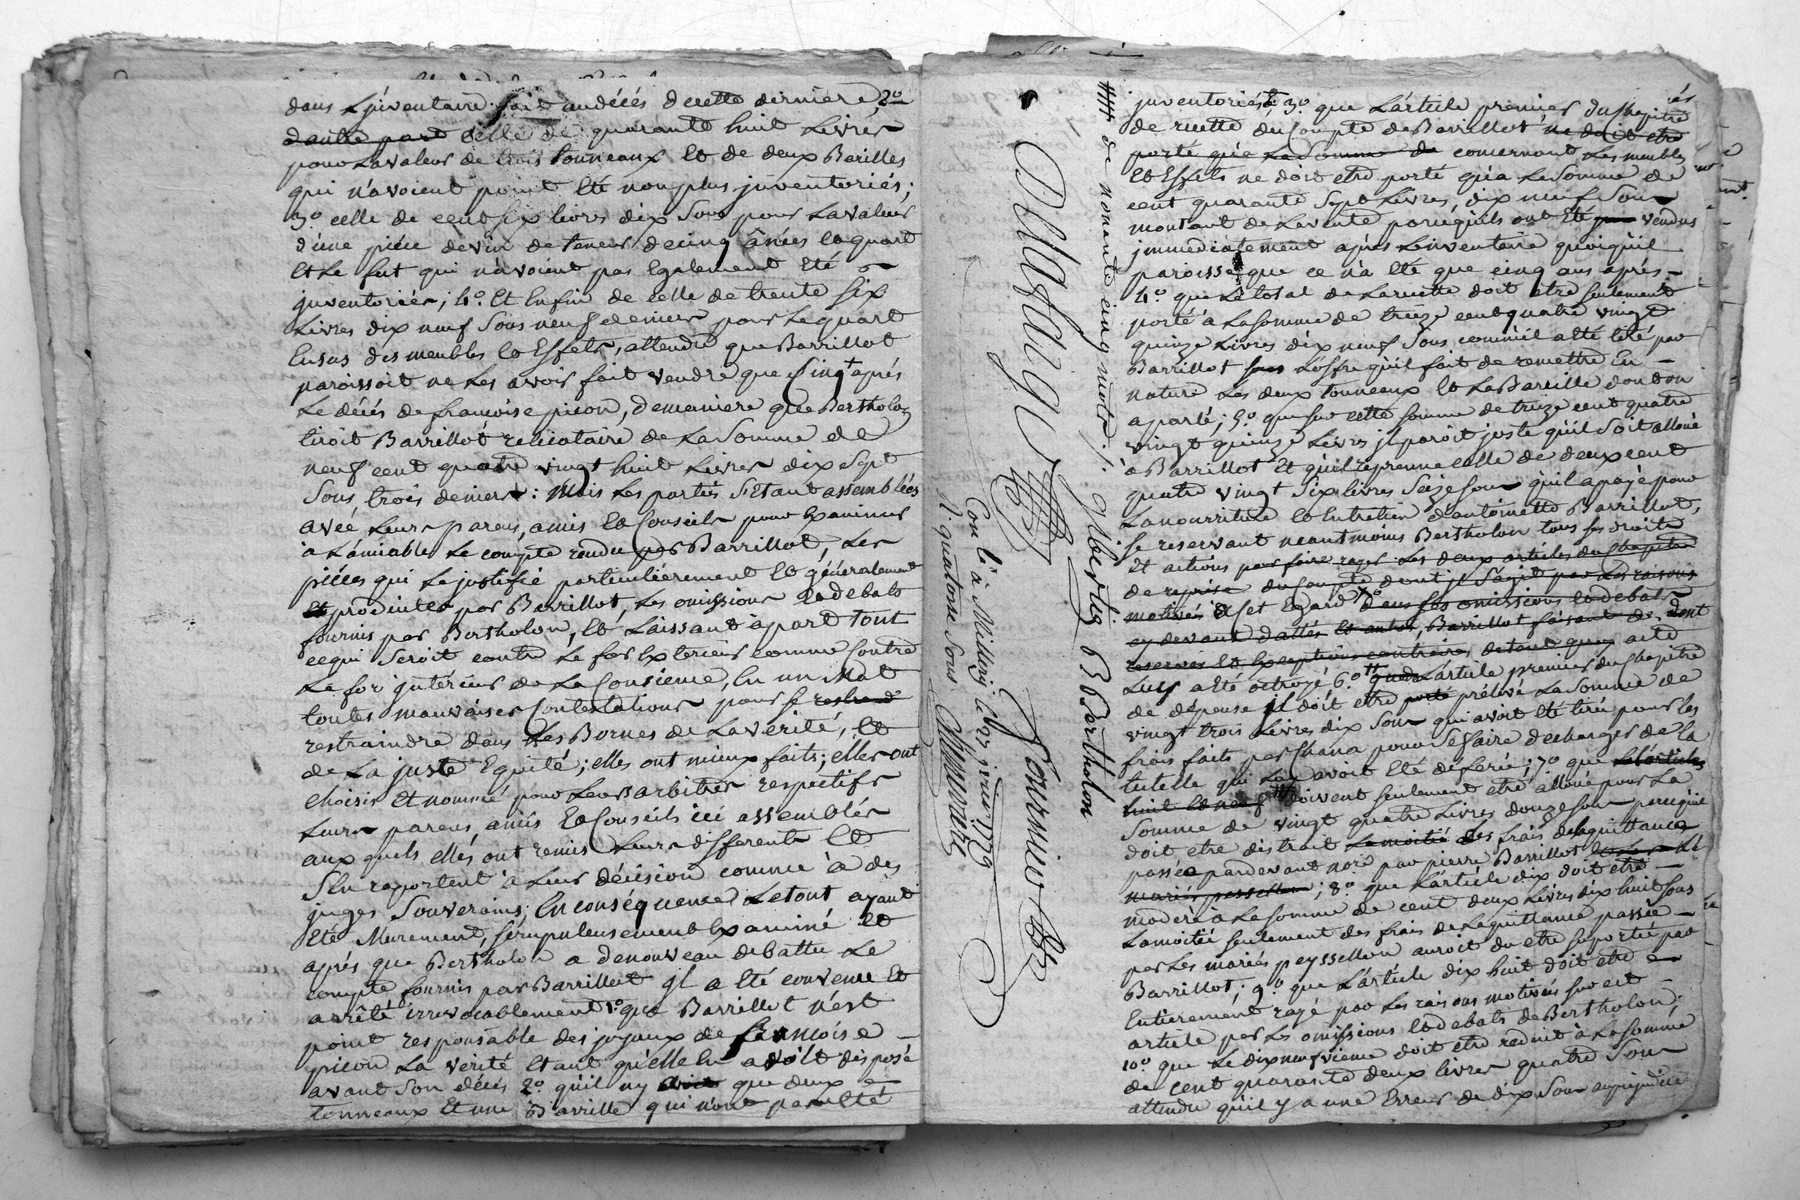 dans L'jnventaire fait audécés decette derniere, 2º
dautre part celle de quarante huit Livres
pour Lavaleur de trois tonneaux et de deux Barilles
qui n'avoient point été nonplus jnventoriés;
3º celle de cent six livres dix Sous pour Lavaleur
d'une piece devin de teneur decinq ânées et quart
et Le fut qui n'avoient pas Egalement Eté
jnventoriés; 4º. Et Enfin de celle de trente six
Livres dix neuf Sous neuf deniers pour Lequart
Ensus des meubles et Effets, attendu que Barrillot
paroissoit ne Les avoir fait vendre que Cinq ans après
Le décés de françoise picon, demaniere que Bertholon
tiroit Barrillot reliquataire de La Somme de
neuf cent quatre vingt huit Livres dix Sept
Sous trois deniers: Mais Les parties S'Etant assemblées
avec Leurs parens, amis et Conseils pour Examiner
à L'amiable Le compte rendu par Barrillot, Les
piéces qui Le justifie particuliérement et généralement
et produites par Barrillot, Les omissions et debats
fournis par Bertholon, et Laissant apart tout
cequi Seroit contre Le for Exterieur comme Contre
Le for jntérieur de La Consience, En un Mot
toutes mauvaises Contestations pour se restrend
restraindre dans Les Bornes de La vérité, et
de La juste Equité; elles ont mieux faits; elles ont
choisis et nommé pour Leurs arbitres respectifs
Leurs parens, amis et Conseils ici assemblés
aux quels elles ont remis Leurs differents et
S'En raportent à Leur décision comme à des
juges Souverains; En conséquence Letout ayant
Eté Murement, scrupuleusement Examiné et
aprés que Bertholon a denouveau debattu Le
compte fournis par Barrillot jl a Eté convenu et
arrêté irrévocablement 1º que Barrillot n'est
point responsable des joyaux de françoise
picon La verité Etant qu'elle En avoit disposé
avant Son décés 2º. qu'il ny avoit que deux
tonneaux Et une Barrille qui n'ont pas Eté
de nonante cinq mots
Delafarge
Gibertie
B Bertholon
Fournier
Con lé à Millery le 23 jenvier 1779
R. quatorse Sous
jnventoriés; 3º. que L'article premier du chapitre
de recette du Compte de Barrillot ne doit etre
porté qu'a La Somme de concernant Les meubles
Et Effets ne doit etre porté qu'a La Somme de
cent quarante Sept Livres, dix neuf Sous
montant de La vente parcequ'ils ont Eté vendus
jmmediatement aprés L'inventaire quoiqu'il
paroisse que ce n'a Eté que cinq ans aprés
4º. que Le total de La recette doit etre seulement
porté à La Somme de treize cent quatre vingt
quinze Livres dix neuf Sous comm'il a Eté tiré par
Barrillot sous L'offre qu'il fait de remettre En
nature Les deux tonneaux et La Bareille dont on
a parlé; 5º. que sur cette Somme de treize cent quatre
vingt quinze Livres jl paroit juste qu'il Soit alloué
à Barrillot Et qu'il reprenne celle de deux cent
quatre vingt Six livres Seize Sous qu'il a payé pour
La nourriture et Entretien d'antoinette Barrillot,
Se reservant neantmoins Bertholon tous ses droits
Et actions pour faire rayer Les deux articles du chapitre
de reprise du Compte dont jl s'agit par Les raisons
motivés à Cet Egard dans ses omissions et debats
cy devant dattés et autres, Barrillot faisant de dont
reserves et Exceptions contraires detout quoy acte
Leur a Eté octroyé 6º que L'article premier du chapitre
de depense jl doit etre porté prélevé La Somme de
vingt trois Livres dix Sous qui avoit Eté tiré pour les
frais faits par Chana pour Se faire decharger de La
tutelle qui Luy avoit Eté déferée; 7º que Les articles
huit et neuf doivent seulement etre alloué pour La
Somme de vingt quatre Livres douze Sous parcequ'il
doit etre distrait La moitié des frais de la quittance
passée pardevant no.re par pierre Barrillot
mariés peyssellon; 8º. que L'article dix doit etre
moderé à La Somme de cent deux Livres dix huit Sous
La moitié seulement des frais de La quittance passée
par Les mariés peyssellon auroit du etre suporté par
Barrillot; 9º que L'article dix huit doit etre
Entierement rayé par Les raisons motivées sur cet
article par Les omissions et debats de Bertholon;
10º que Le dixneufvieme doit etre reduit à La Somme
de cent quarante deux livres quatre Sous
attendu qu'il y a une Erreur de dix Sous au préjudice